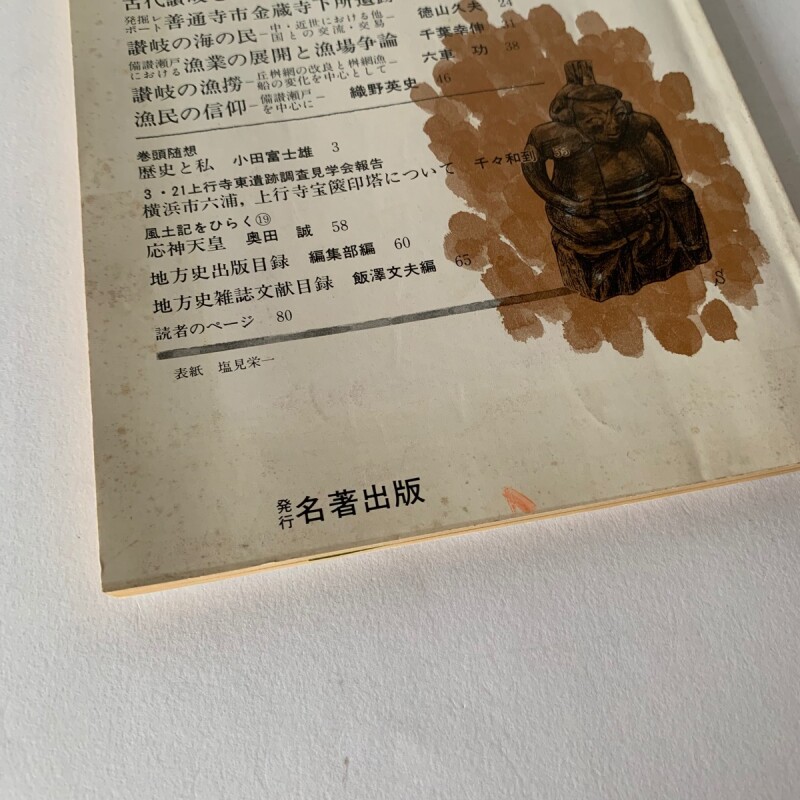 古代讃岐と
発掘レポート 善通寺市金蔵寺下所遺跡
讃岐の海の民 ―中・近世における他国との交流・交易― 徳山久夫 24
備讃瀬戸における 漁業の展開と漁場争論 千葉幸伸 31
讃岐の漁撈 ―丘桝網の改良と桝網漁船の変化を中心として― 六車 功 38
漁民の信仰 ―備讃瀬戸を中心に― 織野英史 46
巻頭随想
歴史と私 小田富士雄 3
3・21上行寺東遺跡調査見学会報告
横浜市六浦,上行寺宝篋印塔について 千々和到
風土記をひらく⑲
応神天皇 奥田 誠 58
地方史出版目録 編集部編 60
地方史雑誌文献目録 飯澤文夫編 65
読者のページ 80
S
表紙 塩見栄一
発行 名著出版